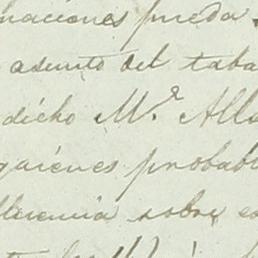 naciones pueda
asunto del taba
dicho Mr. All
quienes probabl
llerenia sobre es